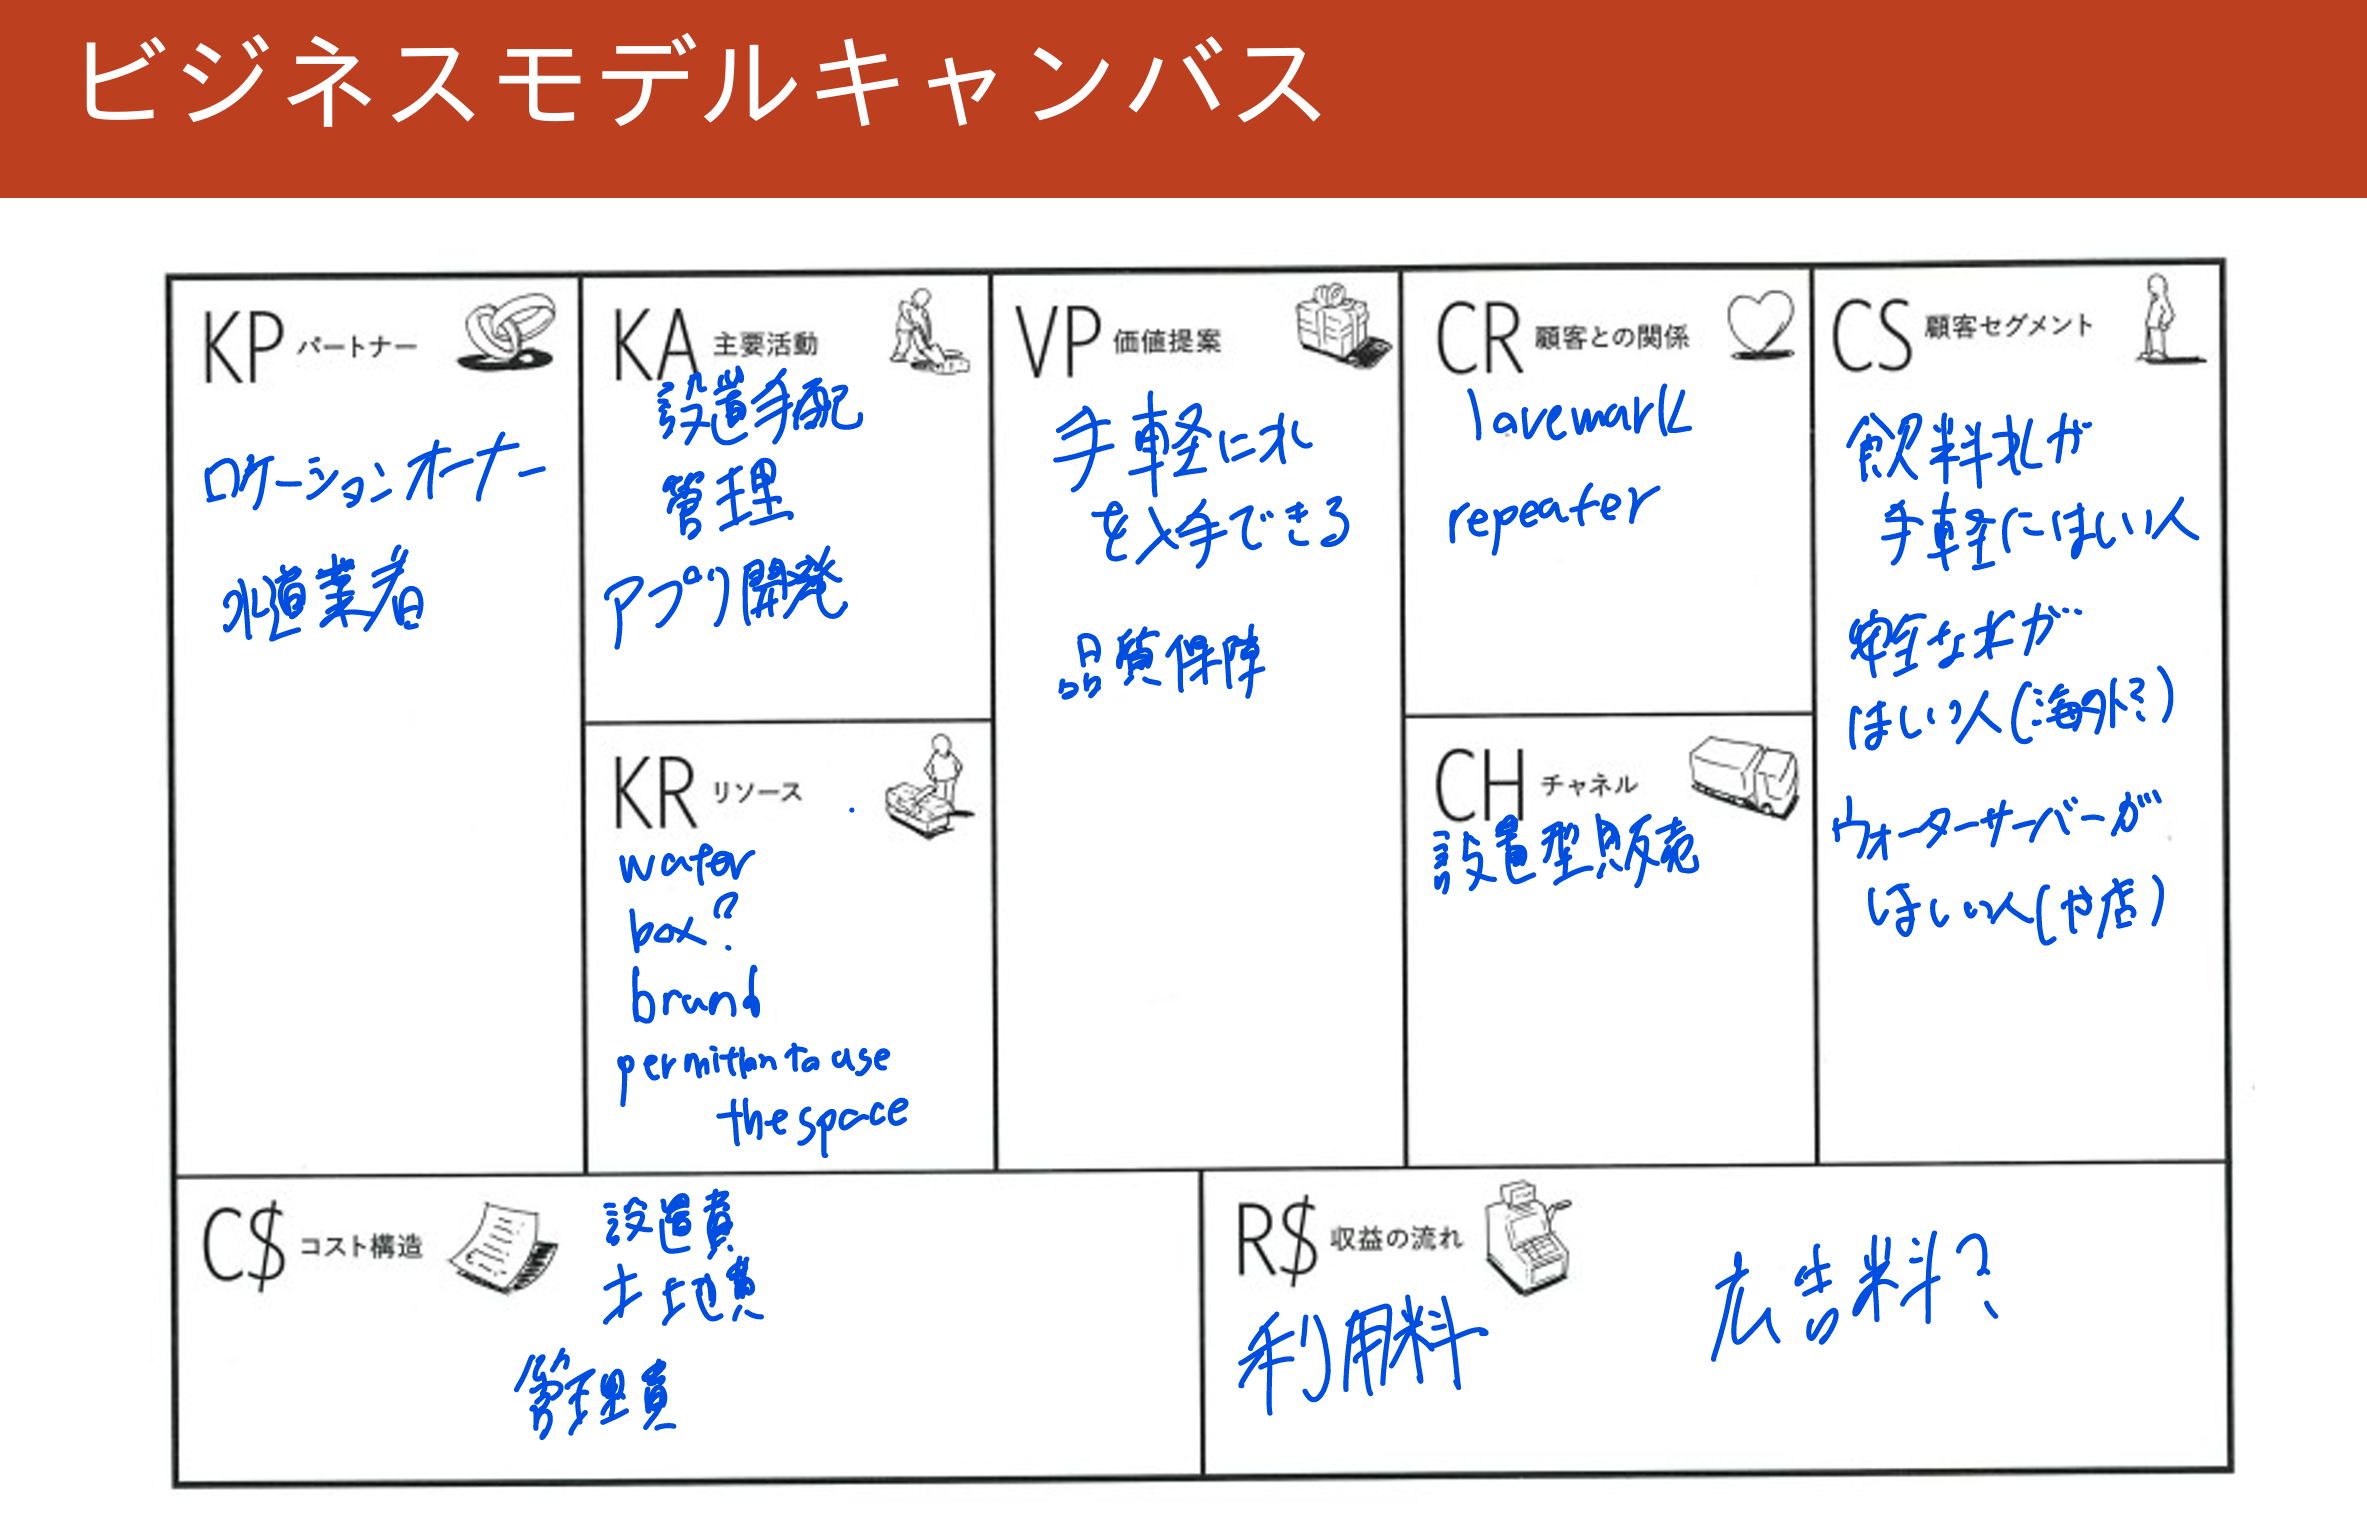 ビジネスモデルキャンバス
KP パートナー
ロケーションオーナー
水道業者
KA 主要活動
設置手配
管理
アプリ開発
KR リソース
water
box?
brand
permittion to use
the space
VP 価値提案
手軽に水
を入手できる
品質保障
CR 顧客との関係
lovemark
repeater
CH チャネル
設置型販売
CS 顧客セグメント
飲料水が
手軽にほしい人
安全な水が
ほしい人(海外?)
ウォーターサーバーが
ほしい人(や店)
C$ コスト構造
設置費
土地費
管理費
R$ 収益の流れ
利用料
広告料?